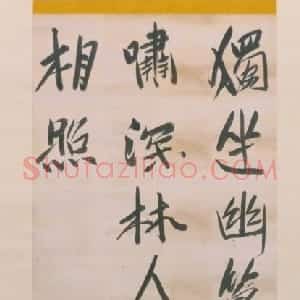 獨坐幽
嘯深林人
相照
Shufaziliao.COM